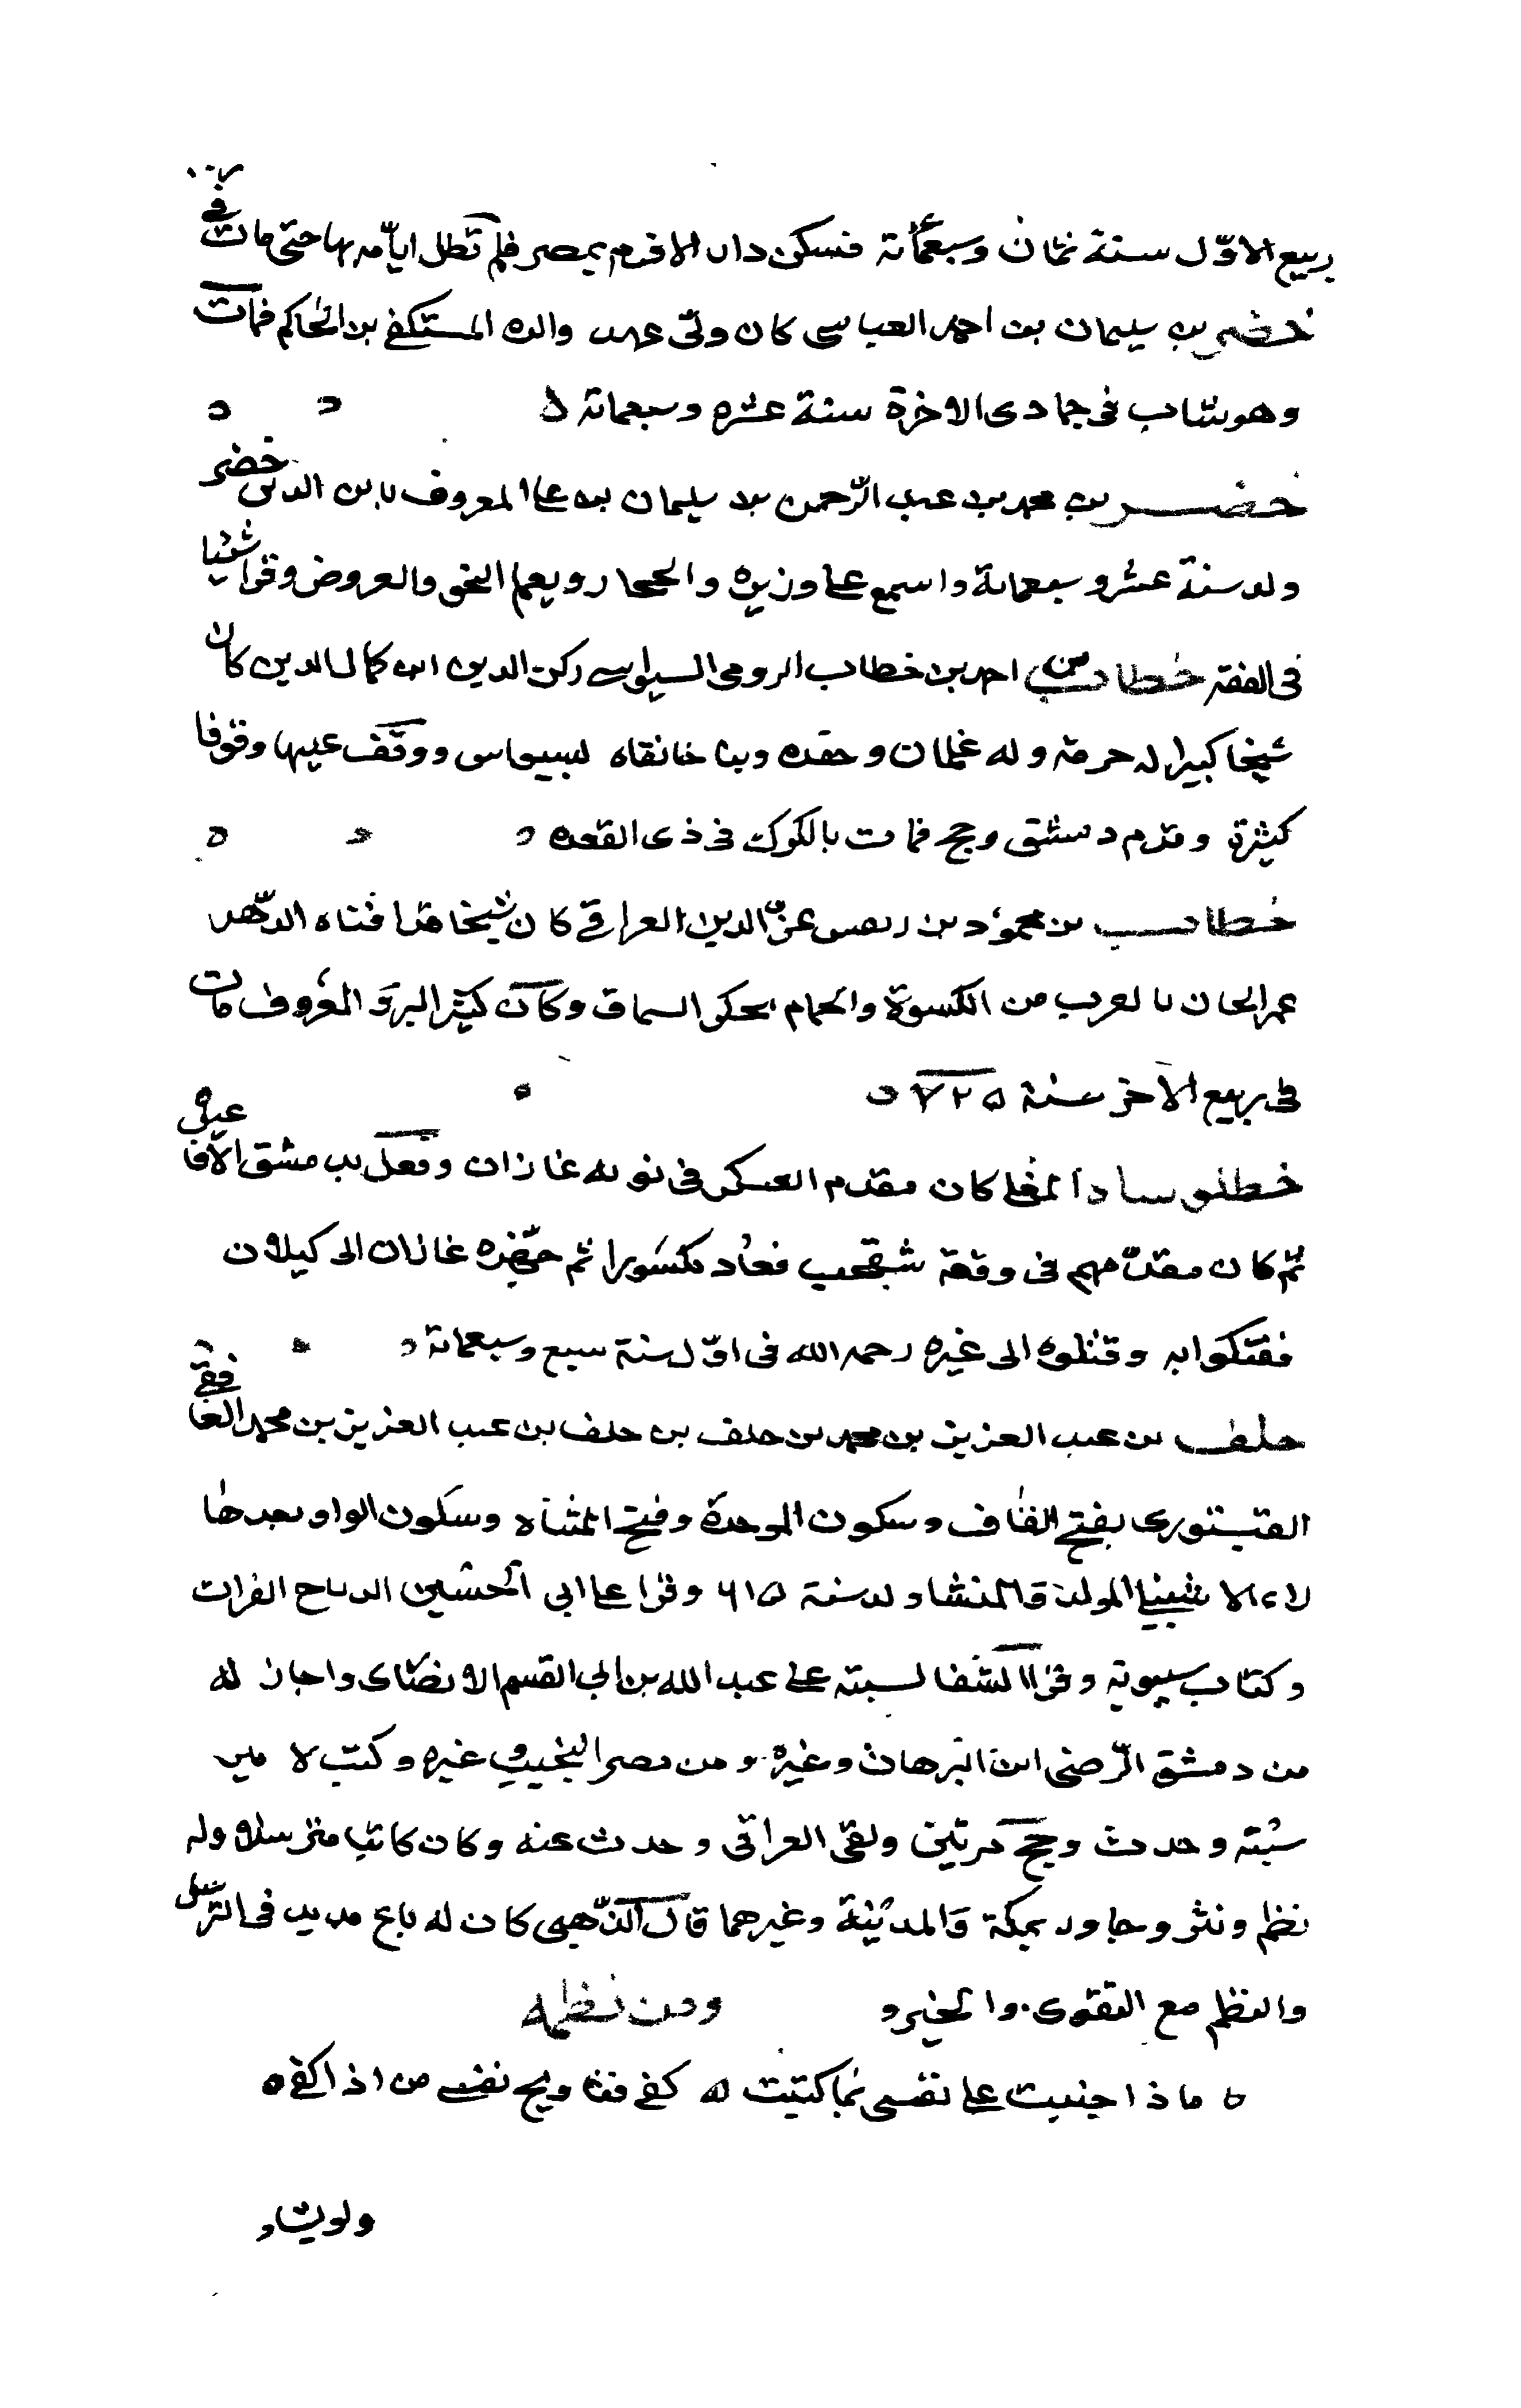 ربيع الاوّل سنة ثمان وسبعمائة فسكن دار الافرم بمصر فلم تطل ايامه بها حتى مات في
خضر بن سليمان بن احمد العباسى كان ولىّ عهد والده المستكفى بن الحاكم فمات
وهو شاب فى جمادى الاخرة سنة عشره وسبعمائة
خضر بن محمد بن عبد الرّحمن بن سليمان بن على المعروف بابن الدين خضر
ولد سنة عشر وسبعمائة واسمع على وزيره والحجار ويعلم النحو والعروض وقرا شيئا
فى الفقه خطاب بن احمد بن خطاب الرومى السيواسى ركن الدين ابن كمال الدين كان
شيخا كبيرا له حرمة وله غلمان وحفده وبنا خانقاه بسيواس ووقف عليها وقوفا
كثيرة وقدم دمشق وحج فمات بالكرك فى ذى القعده
خطاب بن محمود بن عزّ الدين العراقى كان شيخا قد افناه الدّهر
عمر الخان بالعرب من الكسوة والحمام بحكر السماق وكان كثير البرّ والمعروف مات
فى ربيع الآخر سنة ٧٢٥
خطلوسا المغلى كان مقدم العسكر فى نوبة غازان وفعل بدمشق الافاعيل
ثم كان مقدّمهم فى وقعة شقحب فعاد مكسورا ثم جهّزه غازان الى كيلان
فقتكوا به وقتلوه الى غيره رحمه الله فى اوّل سنة سبع وسبعمائة
خلف بن عبد العزيز بن محمد بن خلف بن خلف بن عبد العزيز بن محمد الغافقى
القبتورى بفتح القاف وسكون الموحدة وفتح المثناه وسكون الواو بعدها
راء الاشبيلى المولد والمنشا ولد سنة ٦١٥ وقرا على ابى الحسين الدباج القرات
وكتاب سيبويه وقرا الشفا لسبته على عبد الله بن ابى القسم الانصارى واجاز له
من دمشق الرّضى ابن البرهان وغيره ومن مصر النجيب وغيره وكتب لامير
سبتة وحدث وحج مرتين ولقى العراقى وحدث عنه وكان كاتبا مترسلا وله
نظم ونثر وجاور بمكة والمدينة وغيرهما قال الذّهبى كان له باع مديد فى الترسل
والنظم مع التقوى والخير و ومن نظمه
ماذا جنيت على نفسى بما كتبت ٥ كفى فيا ويح نفسى من اذا كفى ٥
ولويشاء